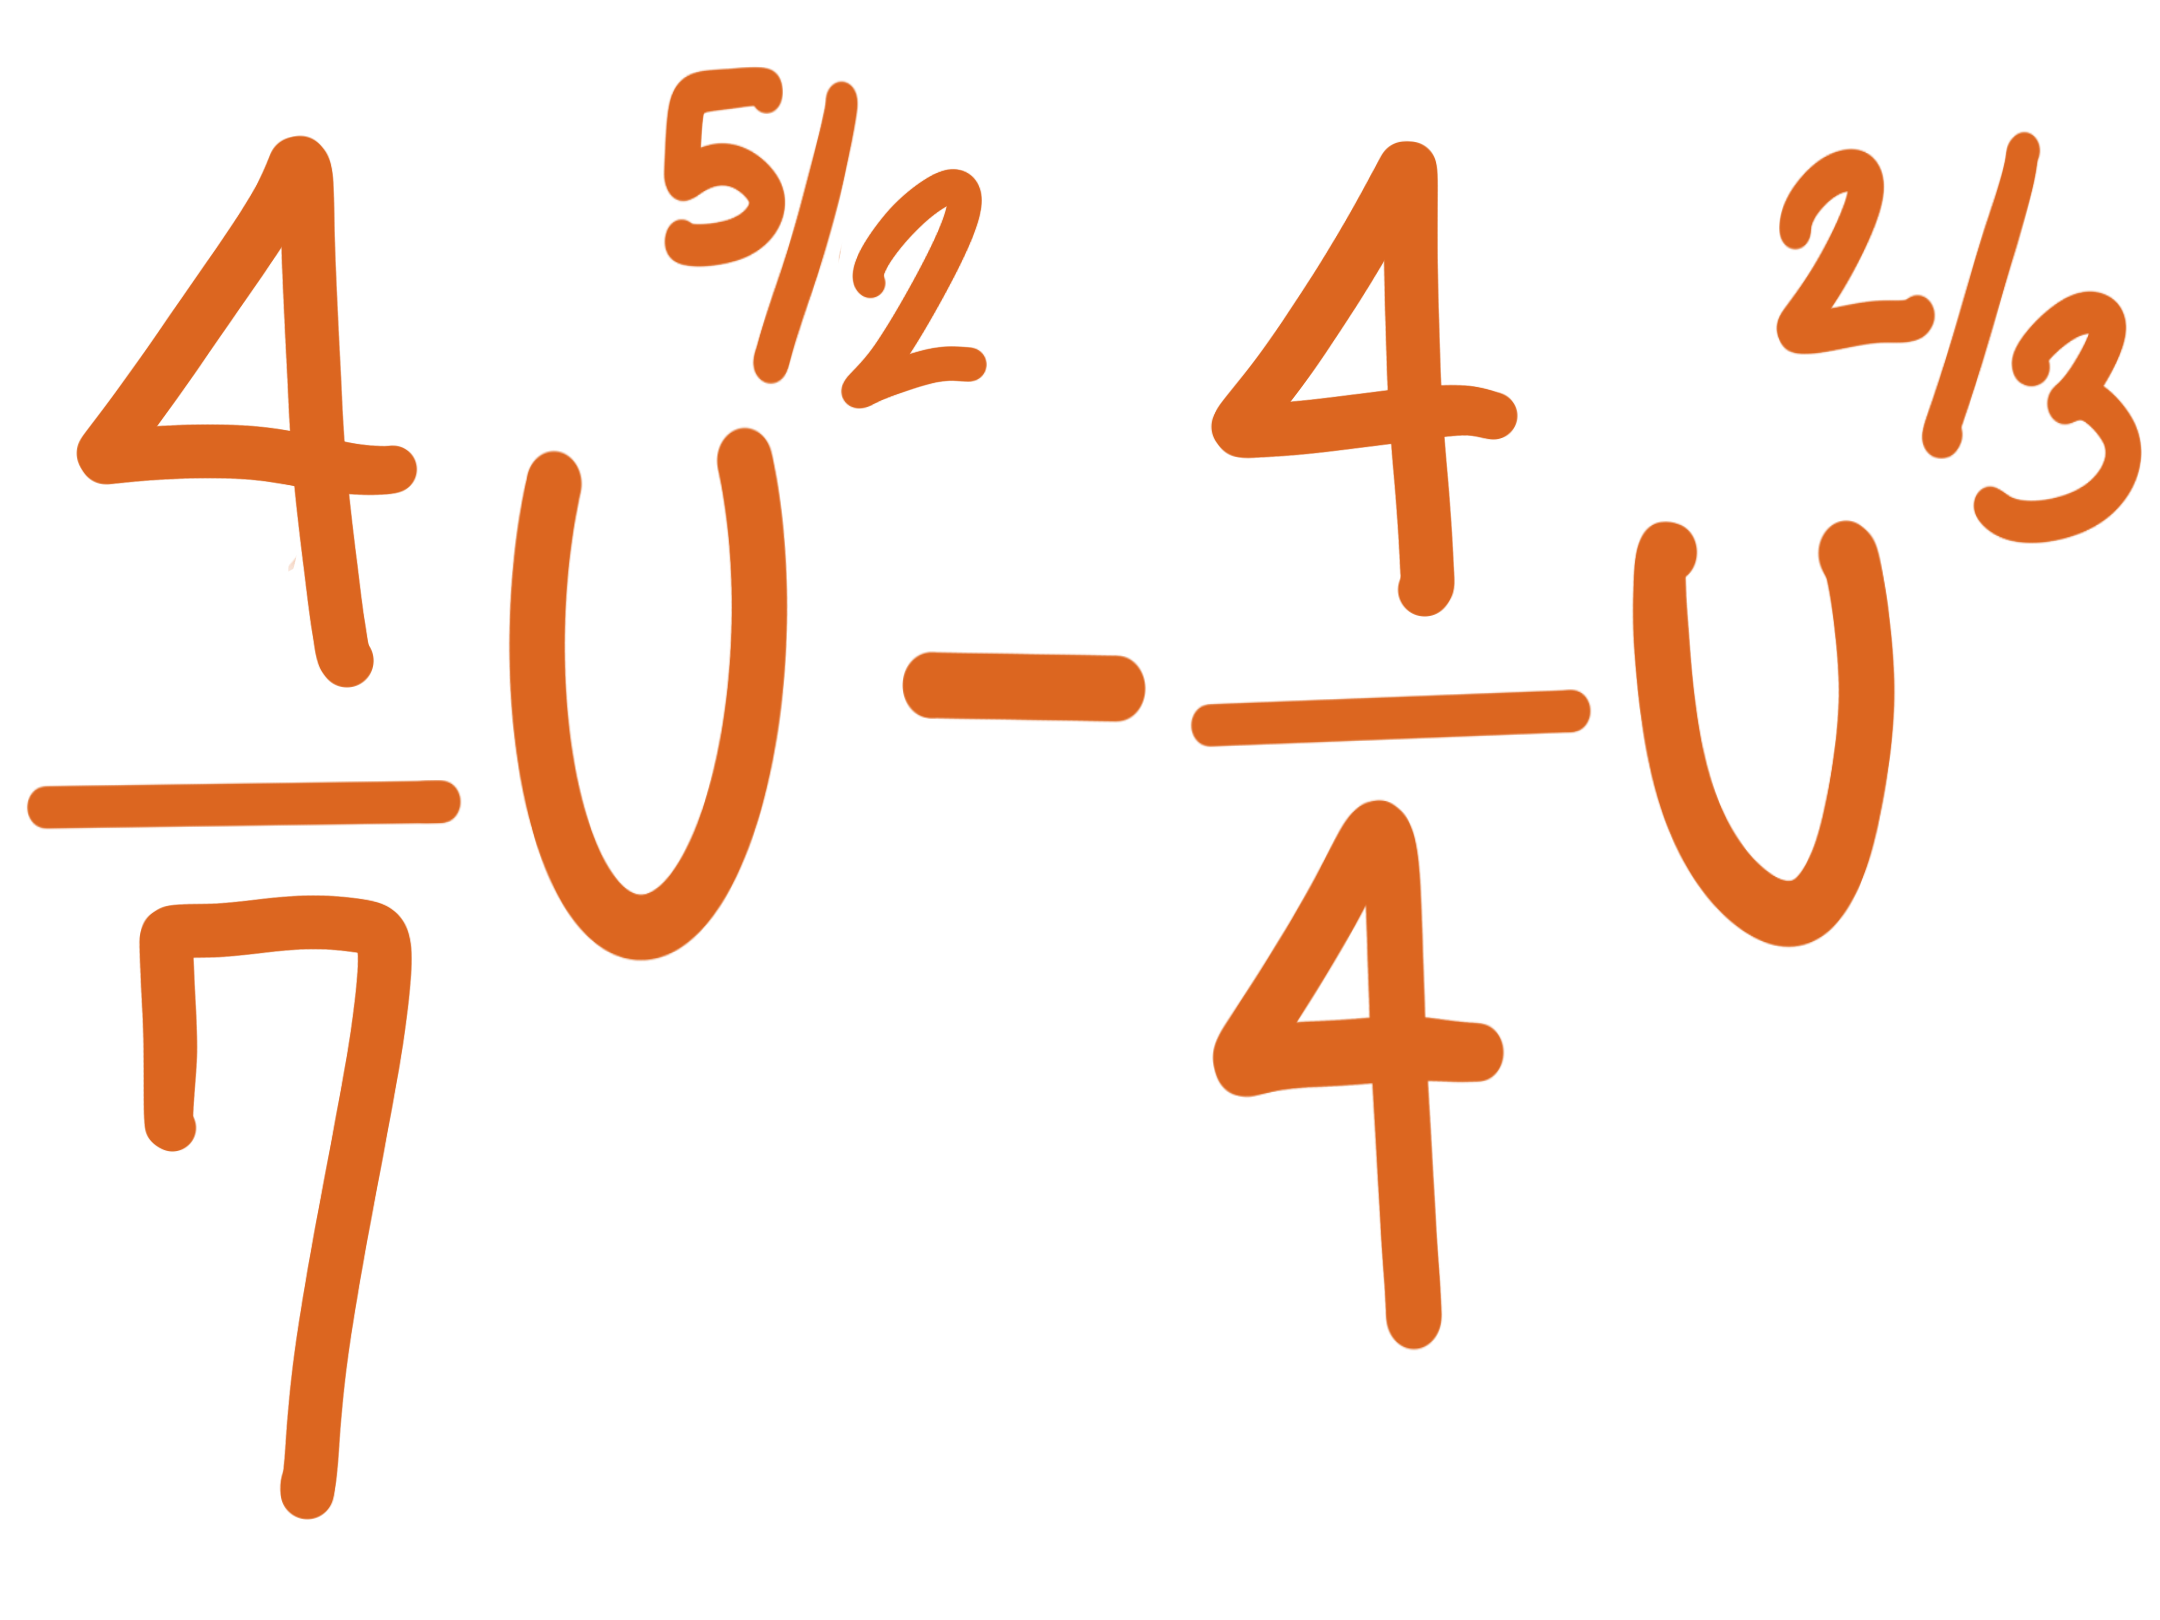 \frac{4}{7}U^{5/2} - \frac{4}{4}U^{2/3}